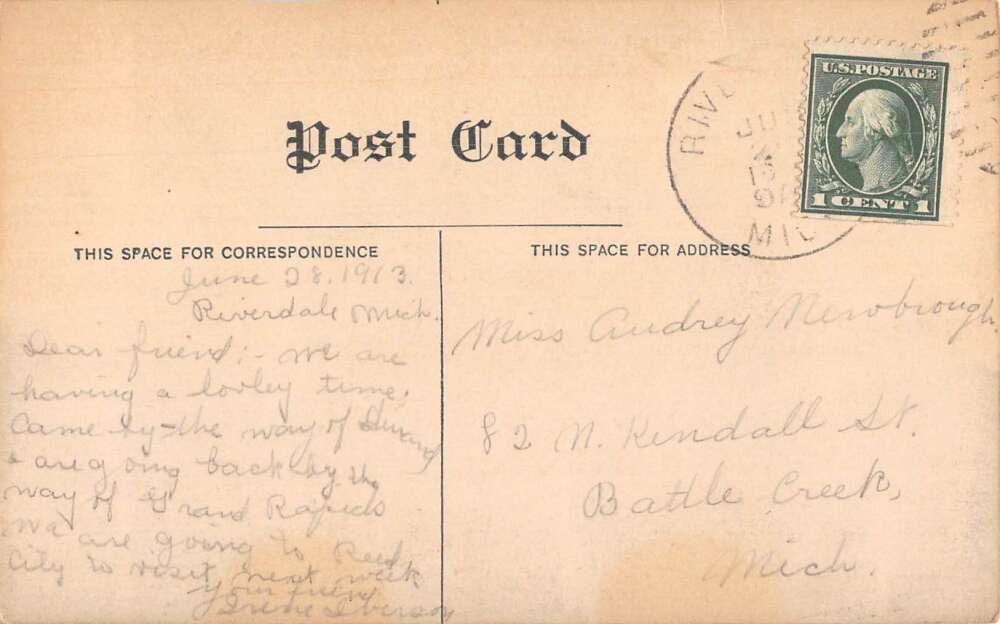 Post Card
THIS SPACE FOR CORRESPONDENCE
THIS SPACE FOR ADDRESS
U.S. POSTAGE
1 CENT 1
RIVE
JU
MIC
June 28, 1913.
Riverdale Mich.
Dear friend:- we are
having a lovley time.
Came by the way of Durand
& are going back by the
way of Grand Rapids
We are going to Reed
City to visit next week
your friend
Irene Iverson
Miss Audrey Newbrough
82 N. Kendall St.
Battle Creek,
Mich.